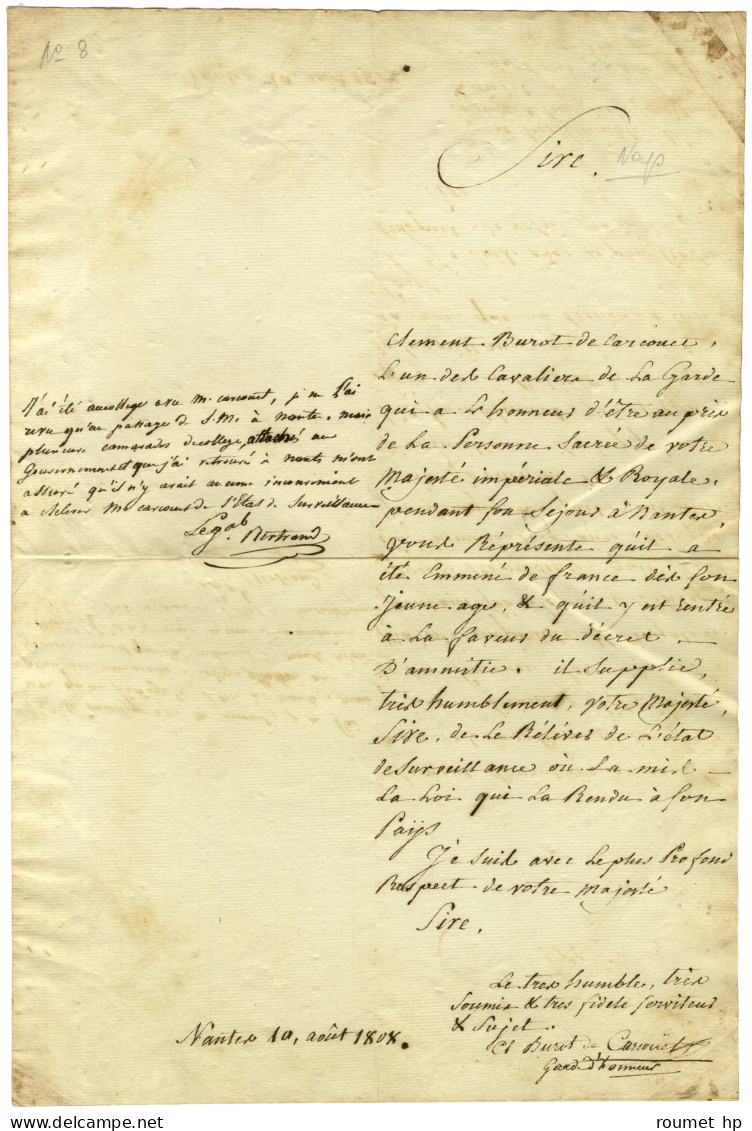 No 8
Sire.
Clement Burot de Carcouet,
L'un des Cavaliers de La Garde
qui a L'honneur d'être auprès
de La Personne Sacrée de votre
Majesté impériale & Royale,
pendant son Sejour à Nantes,
vous Réprésente qu'il a
été Emmené de france dès son
Jeune age, & qu'il y est rentré
à La faveur du décret
D'amnistie. il Supplie,
tres humblement, votre Majesté,
Sire, de Le Rélever de L'état
de Surveillance où La mis
La Loi qui La Rendu à son
Païs
Je suis avec Le plus Profond
Respect de votre Majesté
Sire,
Le tres humble, très
Soumis & tres fidele serviteur
& Sujet.
Cl Burot de Carcouet
Garde d'honneur
Nantes 10, août 1808.
J'ai été au college avec M. carcouet, je ne l'ai
revu qu'au passage de S.M. à Nantes, mais
plusieurs camarades de college, attachés au
Gouvernement que j'ai retrouvé à Nantes m'ont
assuré qu'il n'y avait aucun inconvenient
a relever M. carcouet de l'Etat de Surveillance
Le gal Bertrand
roumet hp